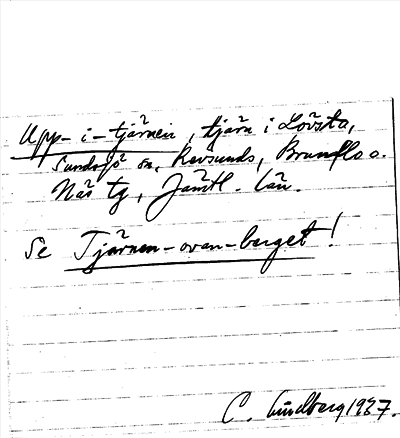 Upp-i-tjärnen, tjärn i Lövsta,
Sundsjö sn, Revsunds, Brunflo o.
Näs tg, Jämtl. län.
Se Tjärnen-ovan-berget!
C. Lindberg 1927.